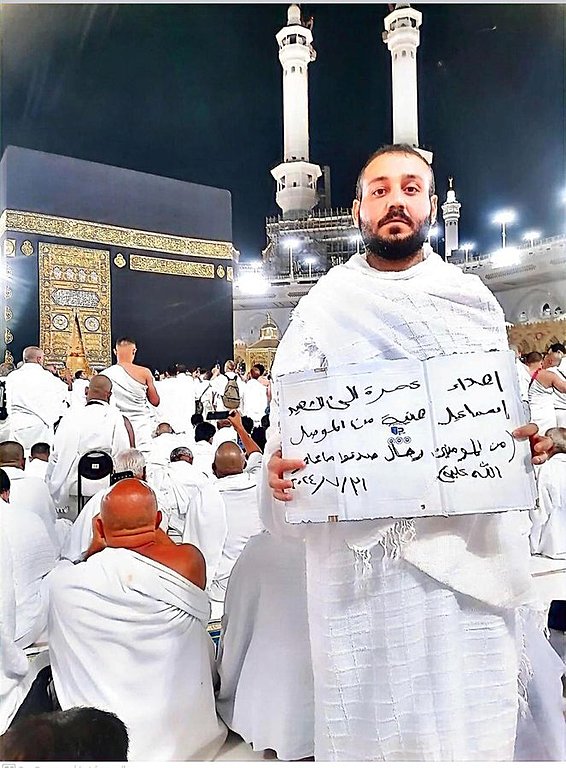 اهداء عمرة الى الشهيد
اسماعيل هنية من الموصل
(من المؤمنين رجال صدقوا ما عاهدوا
الله عليه) ٢٠٢٤/٧/٣١